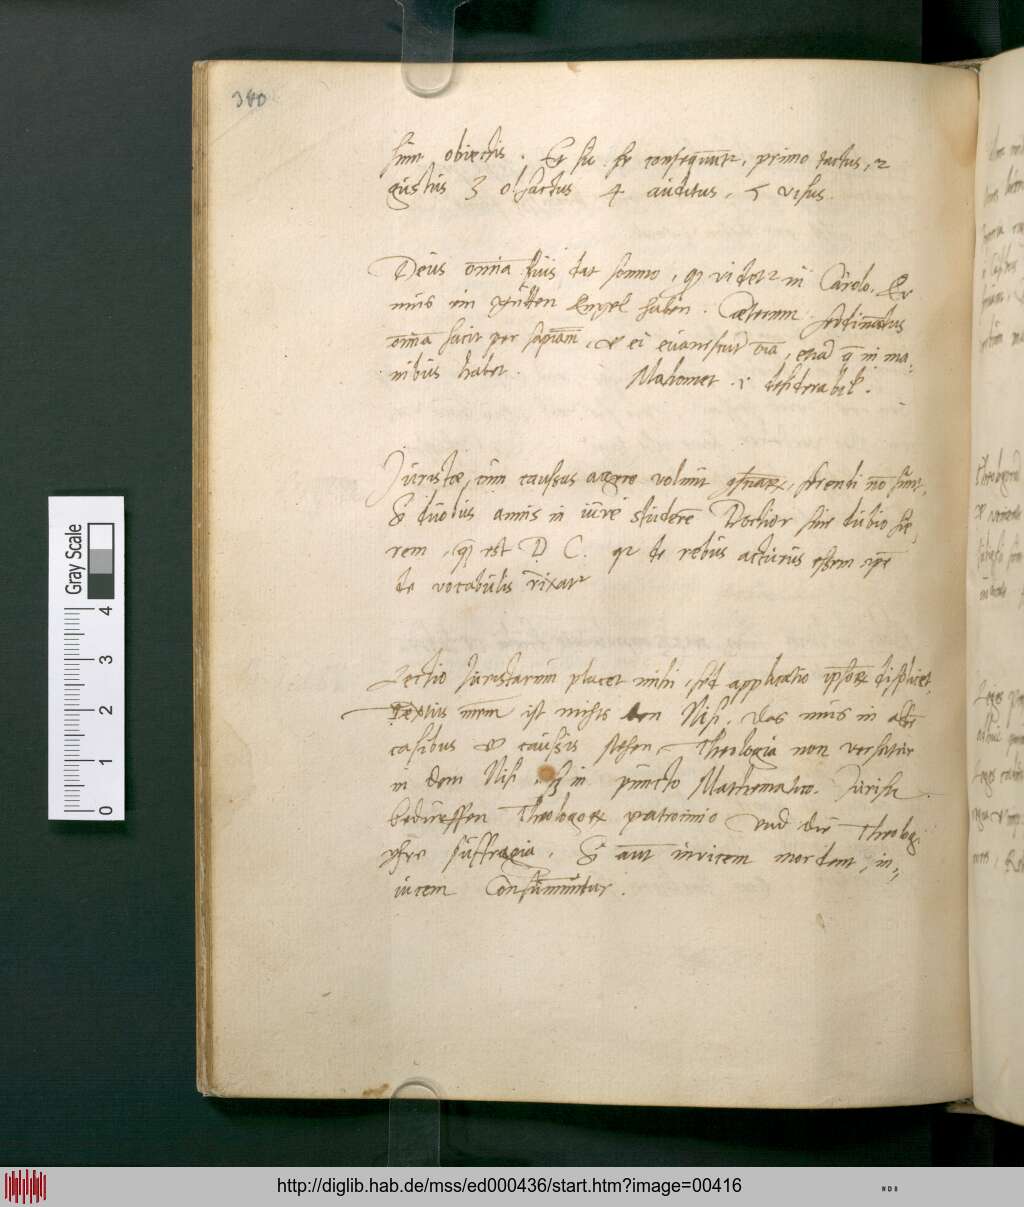 380
sunt obiectis. Et sic se consequuntr, primo tactus, 2
gustus 3 olfactus 4 auditus, 5 visus.
Deus omnia suis dat somno, qd videtr in Carolo. Er
mus ein guten Engel haben. Caeterum festinatus
omnia facit per sapiam, et ei evanescunt oia, etiam q in ma
nibus habet. Mahomet .i. desiderabil.
Juristae, cum caussas agere volunt, ferendi non sunt,
Si duobus annis in iure studerem Doctior sine dubio fie
rem, qd est D C. qr de rebus acturus essem ipse
de vocabulis rixatr
Lectio Juristarum placet mihi, sed applicatio ipsorum displicet,
Textus in rem ist nichts den Nisi. Das mus in allen
casibus et caussis stehen, Theologia non versatur
in dem Nisi, sed in puncto Mathematico. Juristae
bedurffen Theologorum patrocinio Vnd die Theologi
yhre suffragia. Si aut invicem mordent, in
uicem Consummuntur.
Gray Scale
0 1 2 3 4
http://diglib.hab.de/mss/ed000436/start.htm?image=00416